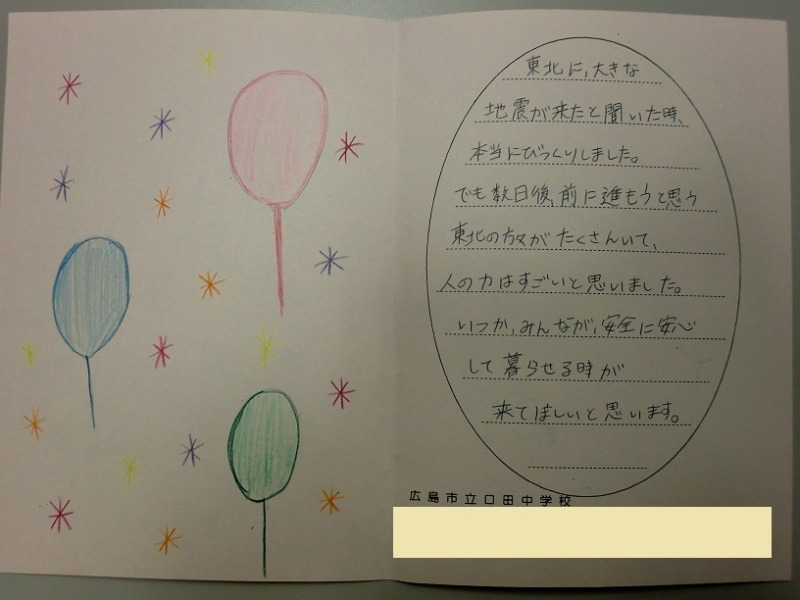 東北に、大きな
地震が来たと聞いた時、
本当にびっくりしました。
でも数日後、前に進もうと思う
東北の方々がたくさんいて、
人の力はすごいと思いました。
いつか、みんなが、安全に安心
して暮らせる時が
来てほしいと思います。
広島市立口田中学校